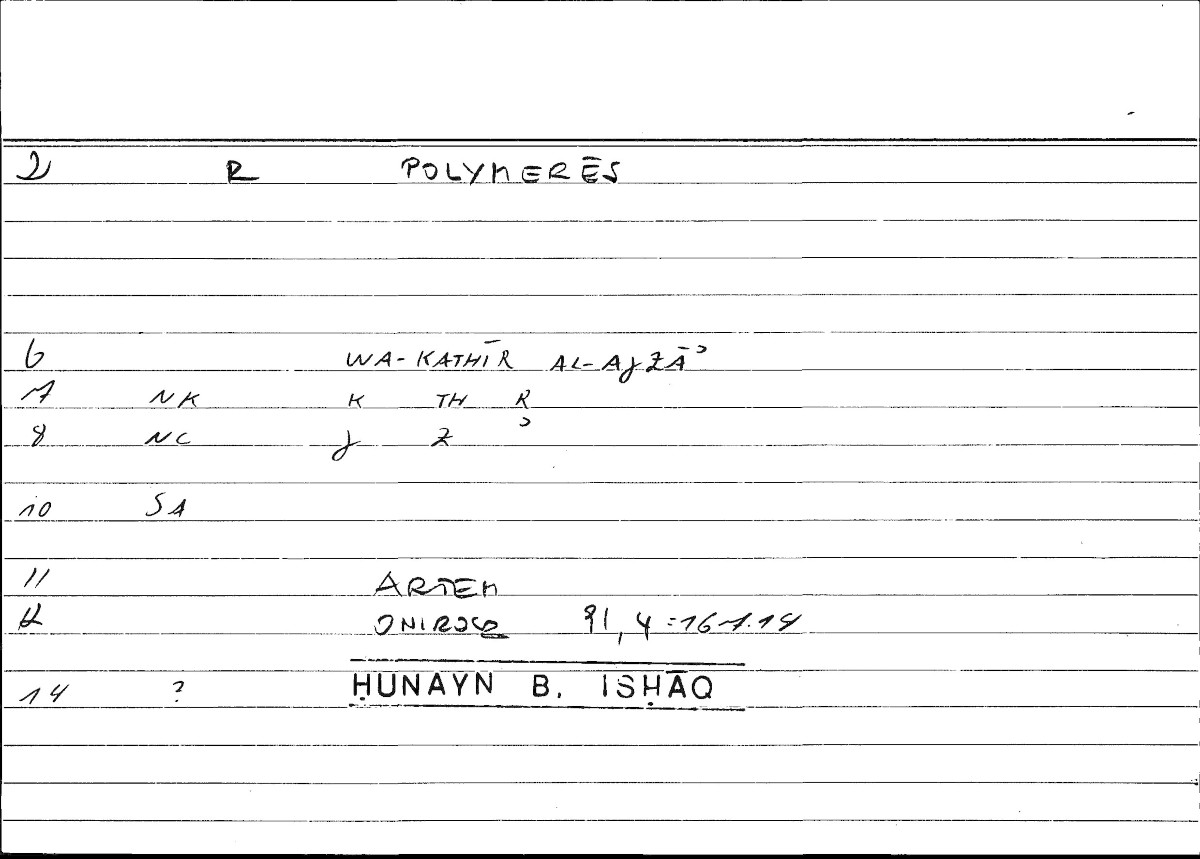 2 R POLYMERĒS
6 WA-KATHĪR AL-AJZĀʾ
7 NK K TH R
8 NC J Z ʾ
10 SA
11 ARTEM
12 ONIROCR 91,4 =
14 ? ḤUNAYN B. ISḤĀQ